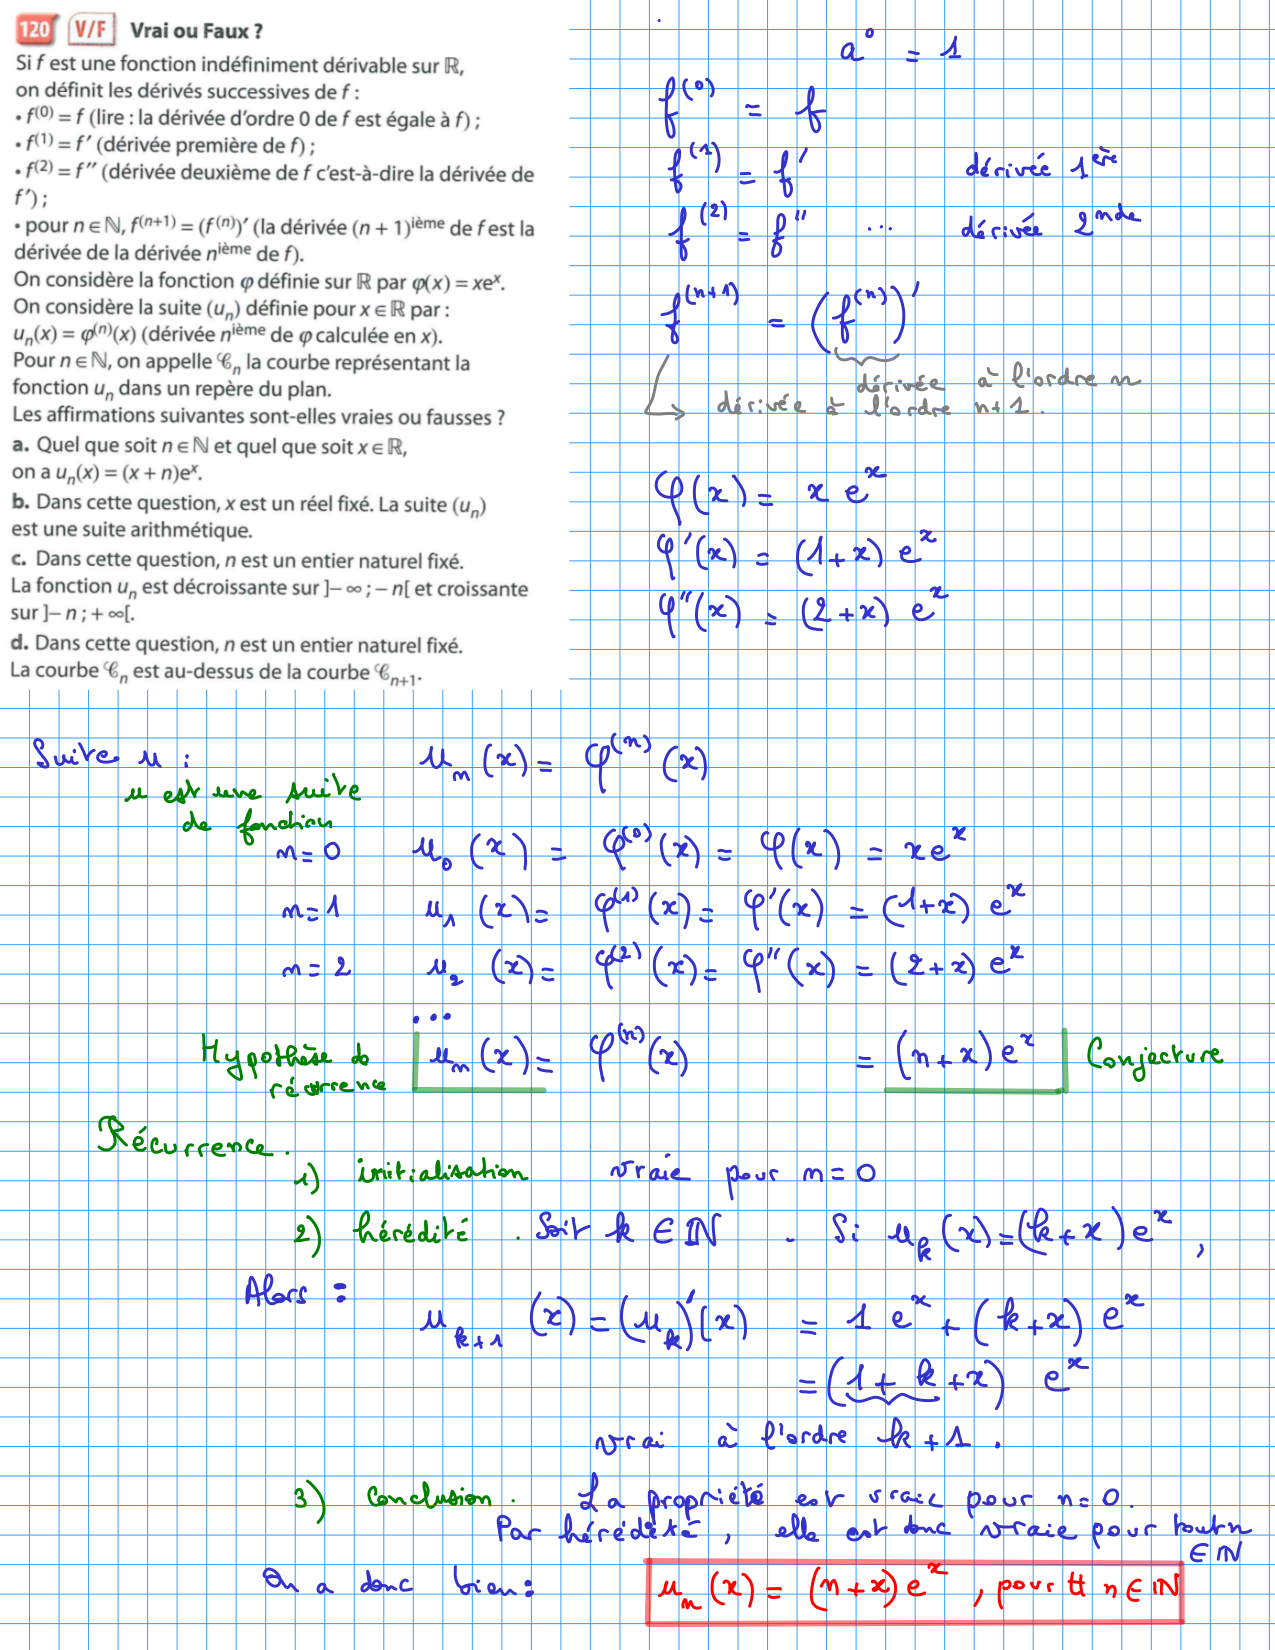 120 V/F Vrai ou Faux ?
Si f est une fonction indéfiniment dérivable sur ℝ,
on définit les dérivés successives de f :
• f⁽⁰⁾ = f (lire : la dérivée d'ordre 0 de f est égale à f) ;
• f⁽¹⁾ = f′ (dérivée première de f) ;
• f⁽²⁾ = f″ (dérivée deuxième de f c'est-à-dire la dérivée de
f′) ;
• pour n ∈ ℕ, f⁽ⁿ⁺¹⁾ = (f⁽ⁿ⁾)′ (la dérivée (n + 1)ième de f est la
dérivée de la dérivée nième de f).
On considère la fonction φ définie sur ℝ par φ(x) = xeˣ.
On considère la suite (uₙ) définie pour x ∈ ℝ par :
uₙ(x) = φ⁽ⁿ⁾(x) (dérivée nième de φ calculée en x).
Pour n ∈ ℕ, on appelle 𝒞ₙ la courbe représentant la
fonction uₙ dans un repère du plan.
Les affirmations suivantes sont-elles vraies ou fausses ?
a. Quel que soit n ∈ ℕ et quel que soit x ∈ ℝ,
on a uₙ(x) = (x + n)eˣ.
b. Dans cette question, x est un réel fixé. La suite (uₙ)
est une suite arithmétique.
c. Dans cette question, n est un entier naturel fixé.
La fonction uₙ est décroissante sur ]– ∞ ; – n[ et croissante
sur ]– n ; + ∞[.
d. Dans cette question, n est un entier naturel fixé.
La courbe 𝒞ₙ est au-dessus de la courbe 𝒞ₙ₊₁.
a⁰ = 1
f⁽⁰⁾ = f
f⁽¹⁾ = f′ dérivée 1ère
f⁽²⁾ = f″ ... dérivée 2nde
f⁽ⁿ⁺¹⁾ = (f⁽ⁿ⁾)′
dérivée à l'ordre n
dérivée à l'ordre n+1.
φ(x) = x eˣ
φ′(x) = (1+x) eˣ
φ″(x) = (2+x) eˣ
Suite u : uₙ(x) = φ⁽ⁿ⁾(x)
u est une suite
de fonction
n=0 u₀(x) = φ⁽⁰⁾(x) = φ(x) = xeˣ
n=1 u₁(x) = φ⁽¹⁾(x) = φ′(x) = (1+x) eˣ
n=2 u₂(x) = φ⁽²⁾(x) = φ″(x) = (2+x) eˣ
...
Hypothèse de uₙ(x) = φ⁽ⁿ⁾(x) = (n+x) eˣ Conjecture
récurrence
Récurrence.
1) initialisation vraie pour n=0
2) hérédité. Soit k ∈ ℕ. Si uₖ(x) = (k+x) eˣ,
Alors : uₖ₊₁(x) = (uₖ)′(x) = 1 eˣ + (k+x) eˣ
= (1+k+x) eˣ
vrai à l'ordre k+1.
3) Conclusion. La propriété est vraie pour n=0.
Par hérédité, elle est donc vraie pour tout n
∈ ℕ
On a donc bien : uₙ(x) = (n+x) eˣ, pour tt n ∈ ℕ